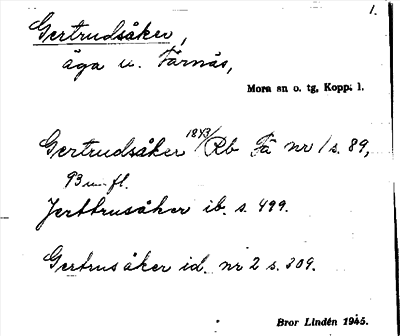 1.
Gertrudsåker,
äga u. Färnäs,
Mora sn o. tg, Kopp. l.
Gertrudsåker 1843/ Rb Fä nr 1 s. 89,
93 m. fl.
Jerttrusåker ib. s. 499.
Gertrusåker id. nr 2 s. 309.
Bror Lindén 1945.